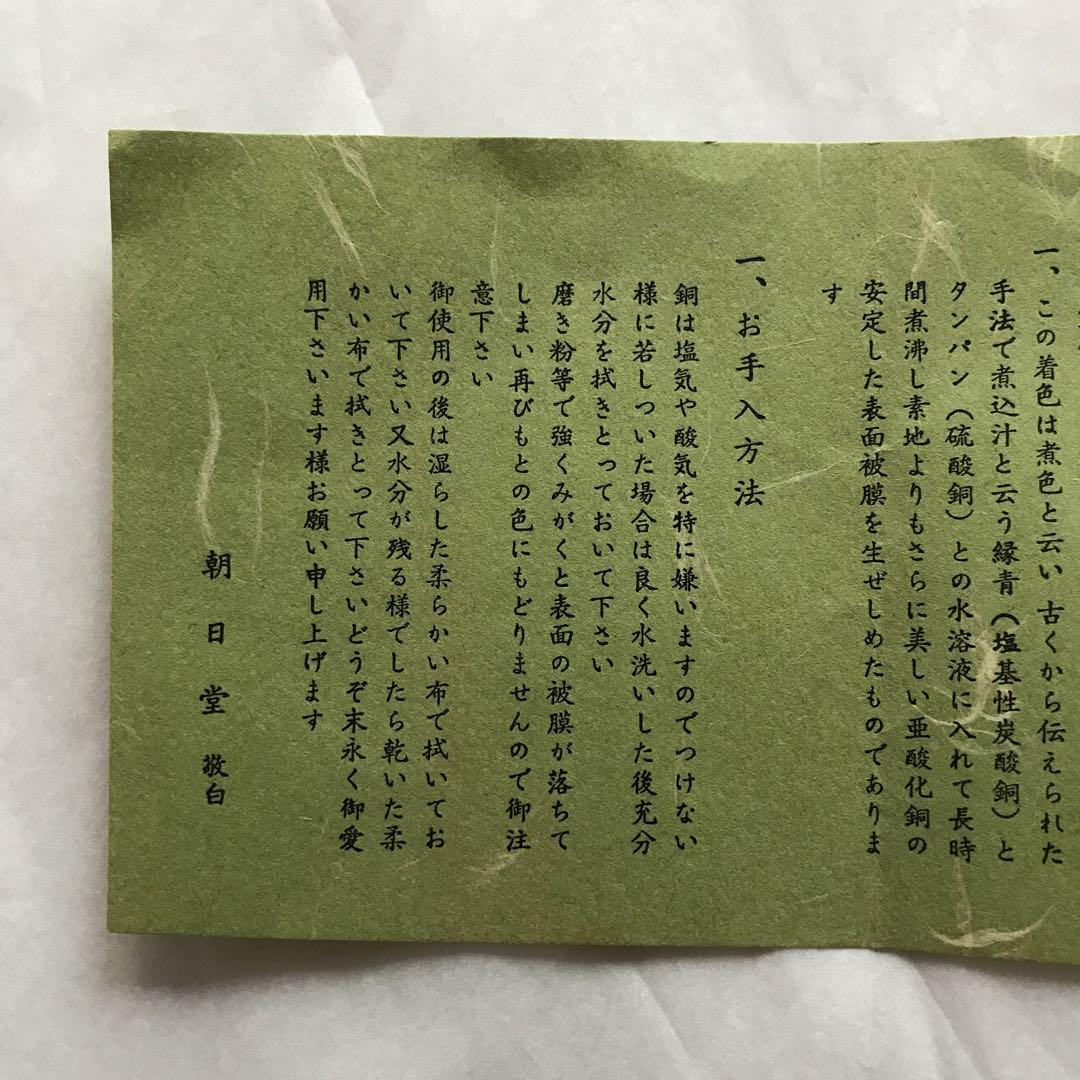 一、この着色は煮色と云い 古くから伝えられた
手法で煮込汁と云う緑青（塩基性炭酸銅）と
タンパン（硫酸銅）との水溶液に入れて長時
間煮沸し素地よりもさらに美しい亜酸化銅の
安定した表面被膜を生ぜしめたものでありま
す
一、お手入方法
銅は塩気や酸気を特に嫌いますのでつけない
様に若しついた場合は良く水洗いした後充分
水分を拭きとっておいて下さい
磨き粉等で強くみがくと表面の被膜が落ちて
しまい再びもとの色にもどりませんので御注
意下さい
御使用の後は湿らした柔らかい布で拭いてお
いて下さい又水分が残る様でしたら乾いた柔
かい布で拭きとって下さいどうぞ末永く御愛
用下さいます様お願い申し上げます
朝日堂 敬白